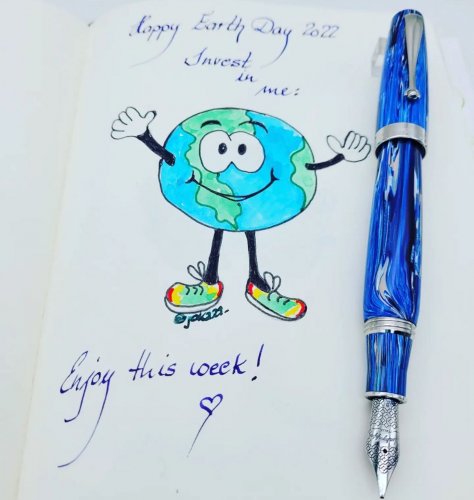 Happy Earth Day 2022
Invest
in
me:
Enjoy this week!